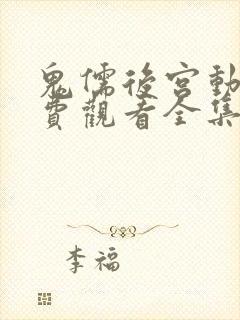 鬼儒後宮動
費觀看全集
李福